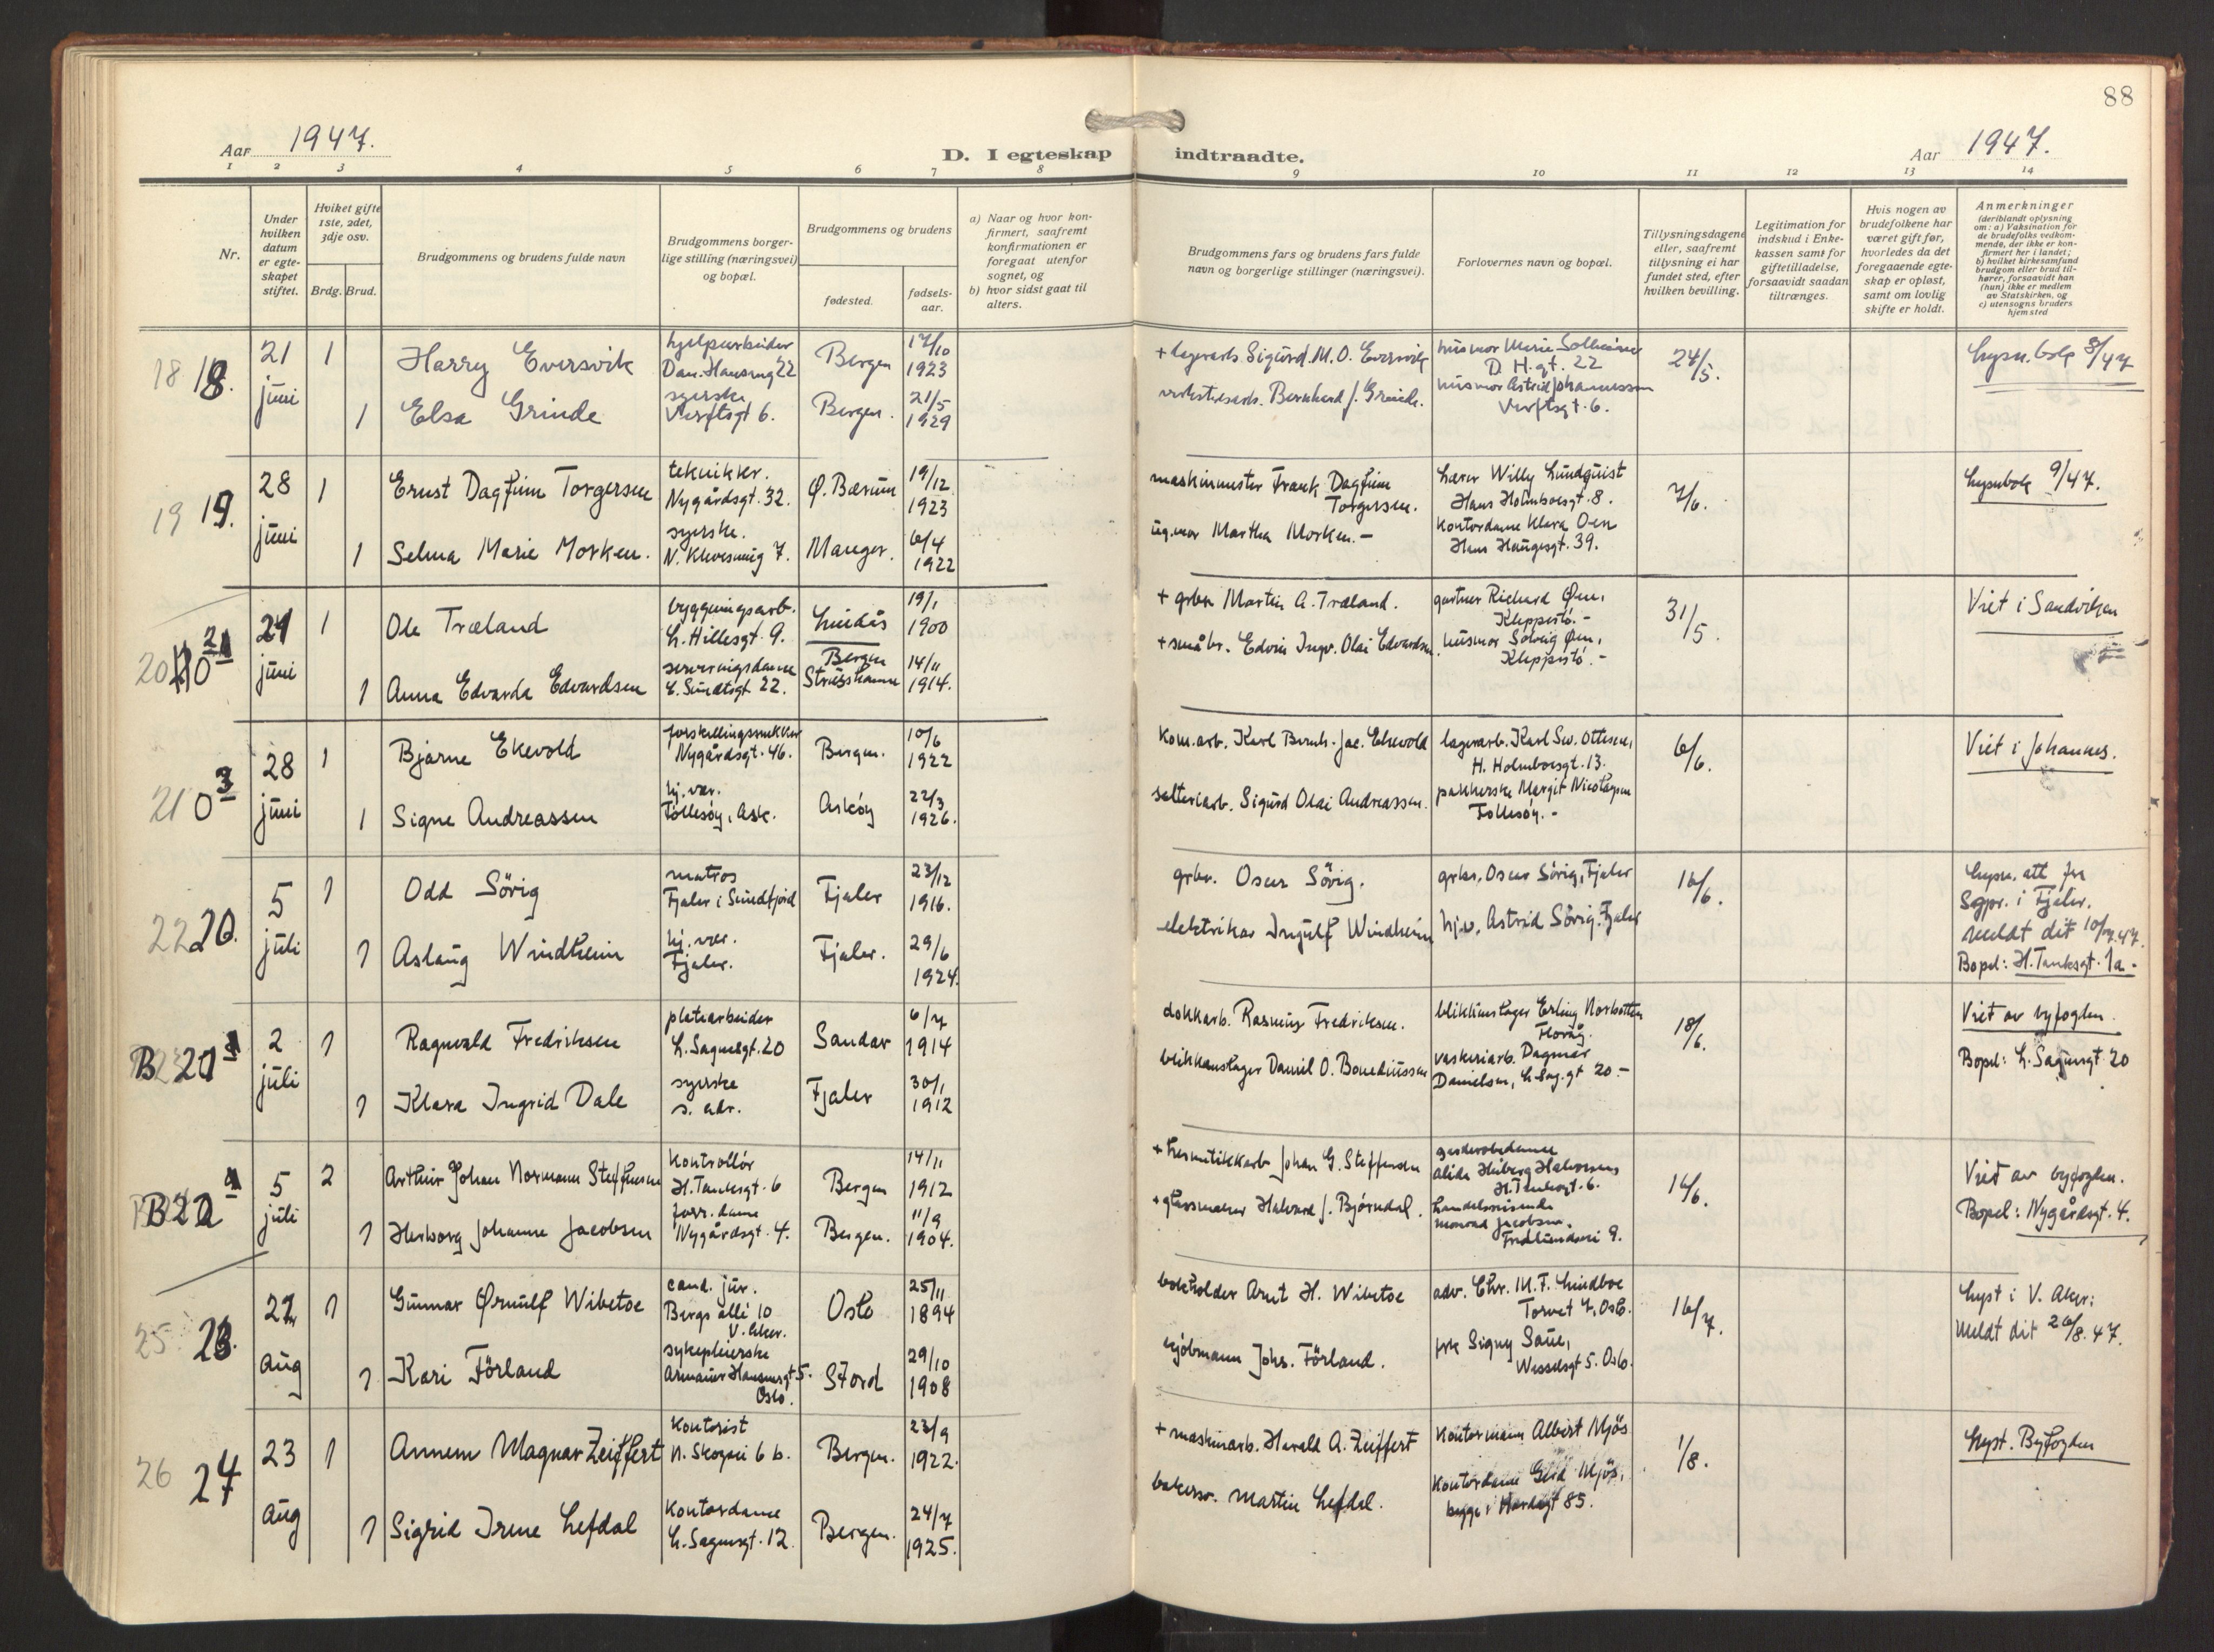 88
Aar 1947.
D. I egteskap indtraadte.
Aar 1947.
1 2 3 4 5 6 7 8 9 10 11 12 13 14
Nr.
Under hvilken datum er egte-skapet stiftet.
Hviket gifte 1ste, 2det, 3dje osv.
Brdg. Brud.
Brudgommens og brudens fulde navn
Brudgommens borger-lige stilling (næringsvei) og bopæl.
Brudgommens og brudens
fødested.
fødsels-aar.
a) Naar og hvor kon-firmert, saafremt konfirmationen er foregaat utenfor sognet, og
b) hvor sidst gaat til alters.
Brudgommens fars og brudens fars fulde navn og borgerlige stillinger (næringsvei).
Forlovernes navn og bopæl.
Tillysningsdagene eller, saafremt tillysning ei har fundet sted, efter hvilken bevilling.
Legitimation for indskud i Enke-kassen samt for giftetilladelse, forsaavidt saadan tiltrænges.
Hvis nogen av brudefolkene har været gift før, hvorledes da det foregaaende egte-skap er opløst, samt om lovlig skifte er holdt.
Anmerkninger
(deriblandt oplysning om: a) Vaksination for de brudefolks vedkom-mende, der ikke er kon-firmert her i landet; b) hvilket kirkesamfund brudgom eller brud til-hører, forsaavidt han (hun) ikke er medlem av Statskirken, og c) utensogns bruders hjemsted
18 18. 21 juni 1 Harry Eversvik hjelpearbeider Dan. Hansensg 22 Bergen 17/10 1923
+ lagerarb. Sigurd. M. O. Eversvik husmor Marie D. H. gt. 22 24/5. Lysn. bok 8/47
1 Elsa Grinde syerske Verftsgt 6. Bergen. 21/5 1929
verkstedsarb. Bernhard J. Grinde. husmor Astrid Johannessen Verftsgt. 6.
19 19. 28 juni 1 Ernst Dagfinn Torgersen tekniker. Nygårdsgt. 32. Ø. Bærum 19/12 1923
maskinmester Frank Dagfinn Torgersen. Lærer Willy Lundquist Hans Holmboesgt. 8. 7/6. Lysnbok 9/47.
1 Selma Marie Morken. syerske. Manger. 6/4 1922
ug. mor Martha Morken. - Kontordame Klara Oen Hans Haugesgt. 39.
20 21 juni 1 Ole Træland bygningsarb. L. Hillesgt. 9. Lindås 19/1 1900
+ grbr. Martin A. Træland. gartner Richard Øen, Kleppestö. - 31/5. Viet i Sandviken
1 Anna Edvarda Edvardsen serveringsdame E. Sundtsgt 22. Bergen Strusshamn 14/11 1914.
+ småbr. Edvin Ingv. Olai Edvardsen. husmor Solveig Øen, Kleppestö. -
21 0 3 28 juni 1 Bjarne Ekevold forskallingssnekker Nygårdsgt. 46. Bergen. 10/6 1922
Kom. arb. Karl Bernh. Jac. Ekevold lagerarb. Karl Sev. Ottesen, H. Holmboesgt. 13. 6/6. Viet i Johannes.
1 Signe Andreassen hj. vær. Follesöy, Ask. Asköy 22/3 1926.
salteriarb. Sigurd Olai Andreassen. pakkerske Margit Nicolaysen Follesöy. -
22 20. 5 juli 1 Odd Sörig matros Fjaler i Sundfjord Fjaler 23/12 1916.
grbr. Oscar Sörig. grbr. Oscar Sörig, Fjaler 16/6. Lysn. att fra Sgpr. i Fjaler. meldt dit 10/7.47. Bopel: H. Tanksgt. 1a. -
1 Aslaug Windheim hj. vær. Fjaler. Fjaler. 29/6 1924.
elektriker Ingulf Windheim hj. v. Astrid Sörig. Fjaler
B 2 juli 1 Ragnvald Fredriksen platearbeider L. Sagensgt. 20 Sandar 6/7 1914
dokkarb. Rasmus Fredriksen. blikkenslager Erling Norbotten Florvåg. 18/6. Viet av byfogden. Bopel: L. Sagensgt 20
1 Klara Ingrid Dale syerske s. adr. Fjaler 30/1 1912
blikkenslager Daniel O. vaskeriarb. Dagmar Danielsen, L. Sag. gt 20. -
B 5 juli 2 Arthur Johan Normann Steffensen Kontrollör H. Tanksgt. 6 Bergen 14/11 1912
+ hermetikkarb Johan G. Steffensen garderobedame Alida H. Tanksgt. 6. 16/6. Viet av byfogden. Bopel: Nygårdsgt. 4.
1 Herborg Johanne Jacobsen forr. dame Nygårdsgt. 4. Bergen. 11/9 1904.
+ glassmaker Halvard J. Bjørndal. handelsreisende Monrad Jacobsen. Fredlundsvei 9.
25 23. 22 aug 1 Gunnar Ørnulf Wibetoe cand. jur. Bergs allé 10 V. Aker. Oslo 25/11 1894
bokholder Arnt H. Wibetoe adv. Chr. M. F. Lindboe Torvet 7, Oslo. 16/7. Lyst i V. Aker: Meldt dit 26/8. 47.
1 Kari Förland sykepleierske Armauer Hansensgt 5. Oslo. Stord 29/10 1908
kjöbmann Johs. Förland. frk Signy Saue, Wesselsgt 5. Oslo.
26 24 23 aug 1 Annem Magnar Zeiffert Kontorist N. Skogvei 6 b. Bergen. 23/9 1922.
+ maskinarb. Harald A. Zeiffert Kontormann Albert Mjös 1/8. Lyst. Byfogden
1 Sigrid Irene Lefdal Kontordame L. Sagensgt. 12. Bergen. 24/7 1925.
bakersv. Martin Lefdal. Kontordame Gerd Mjös, begge i 85.